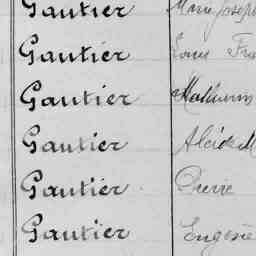 Gautier Marie Joseph
Gautier Louis Fra
Gautier Mathurin
Gautier Alcide M
Gautier Pierre
Gautier Eugénie